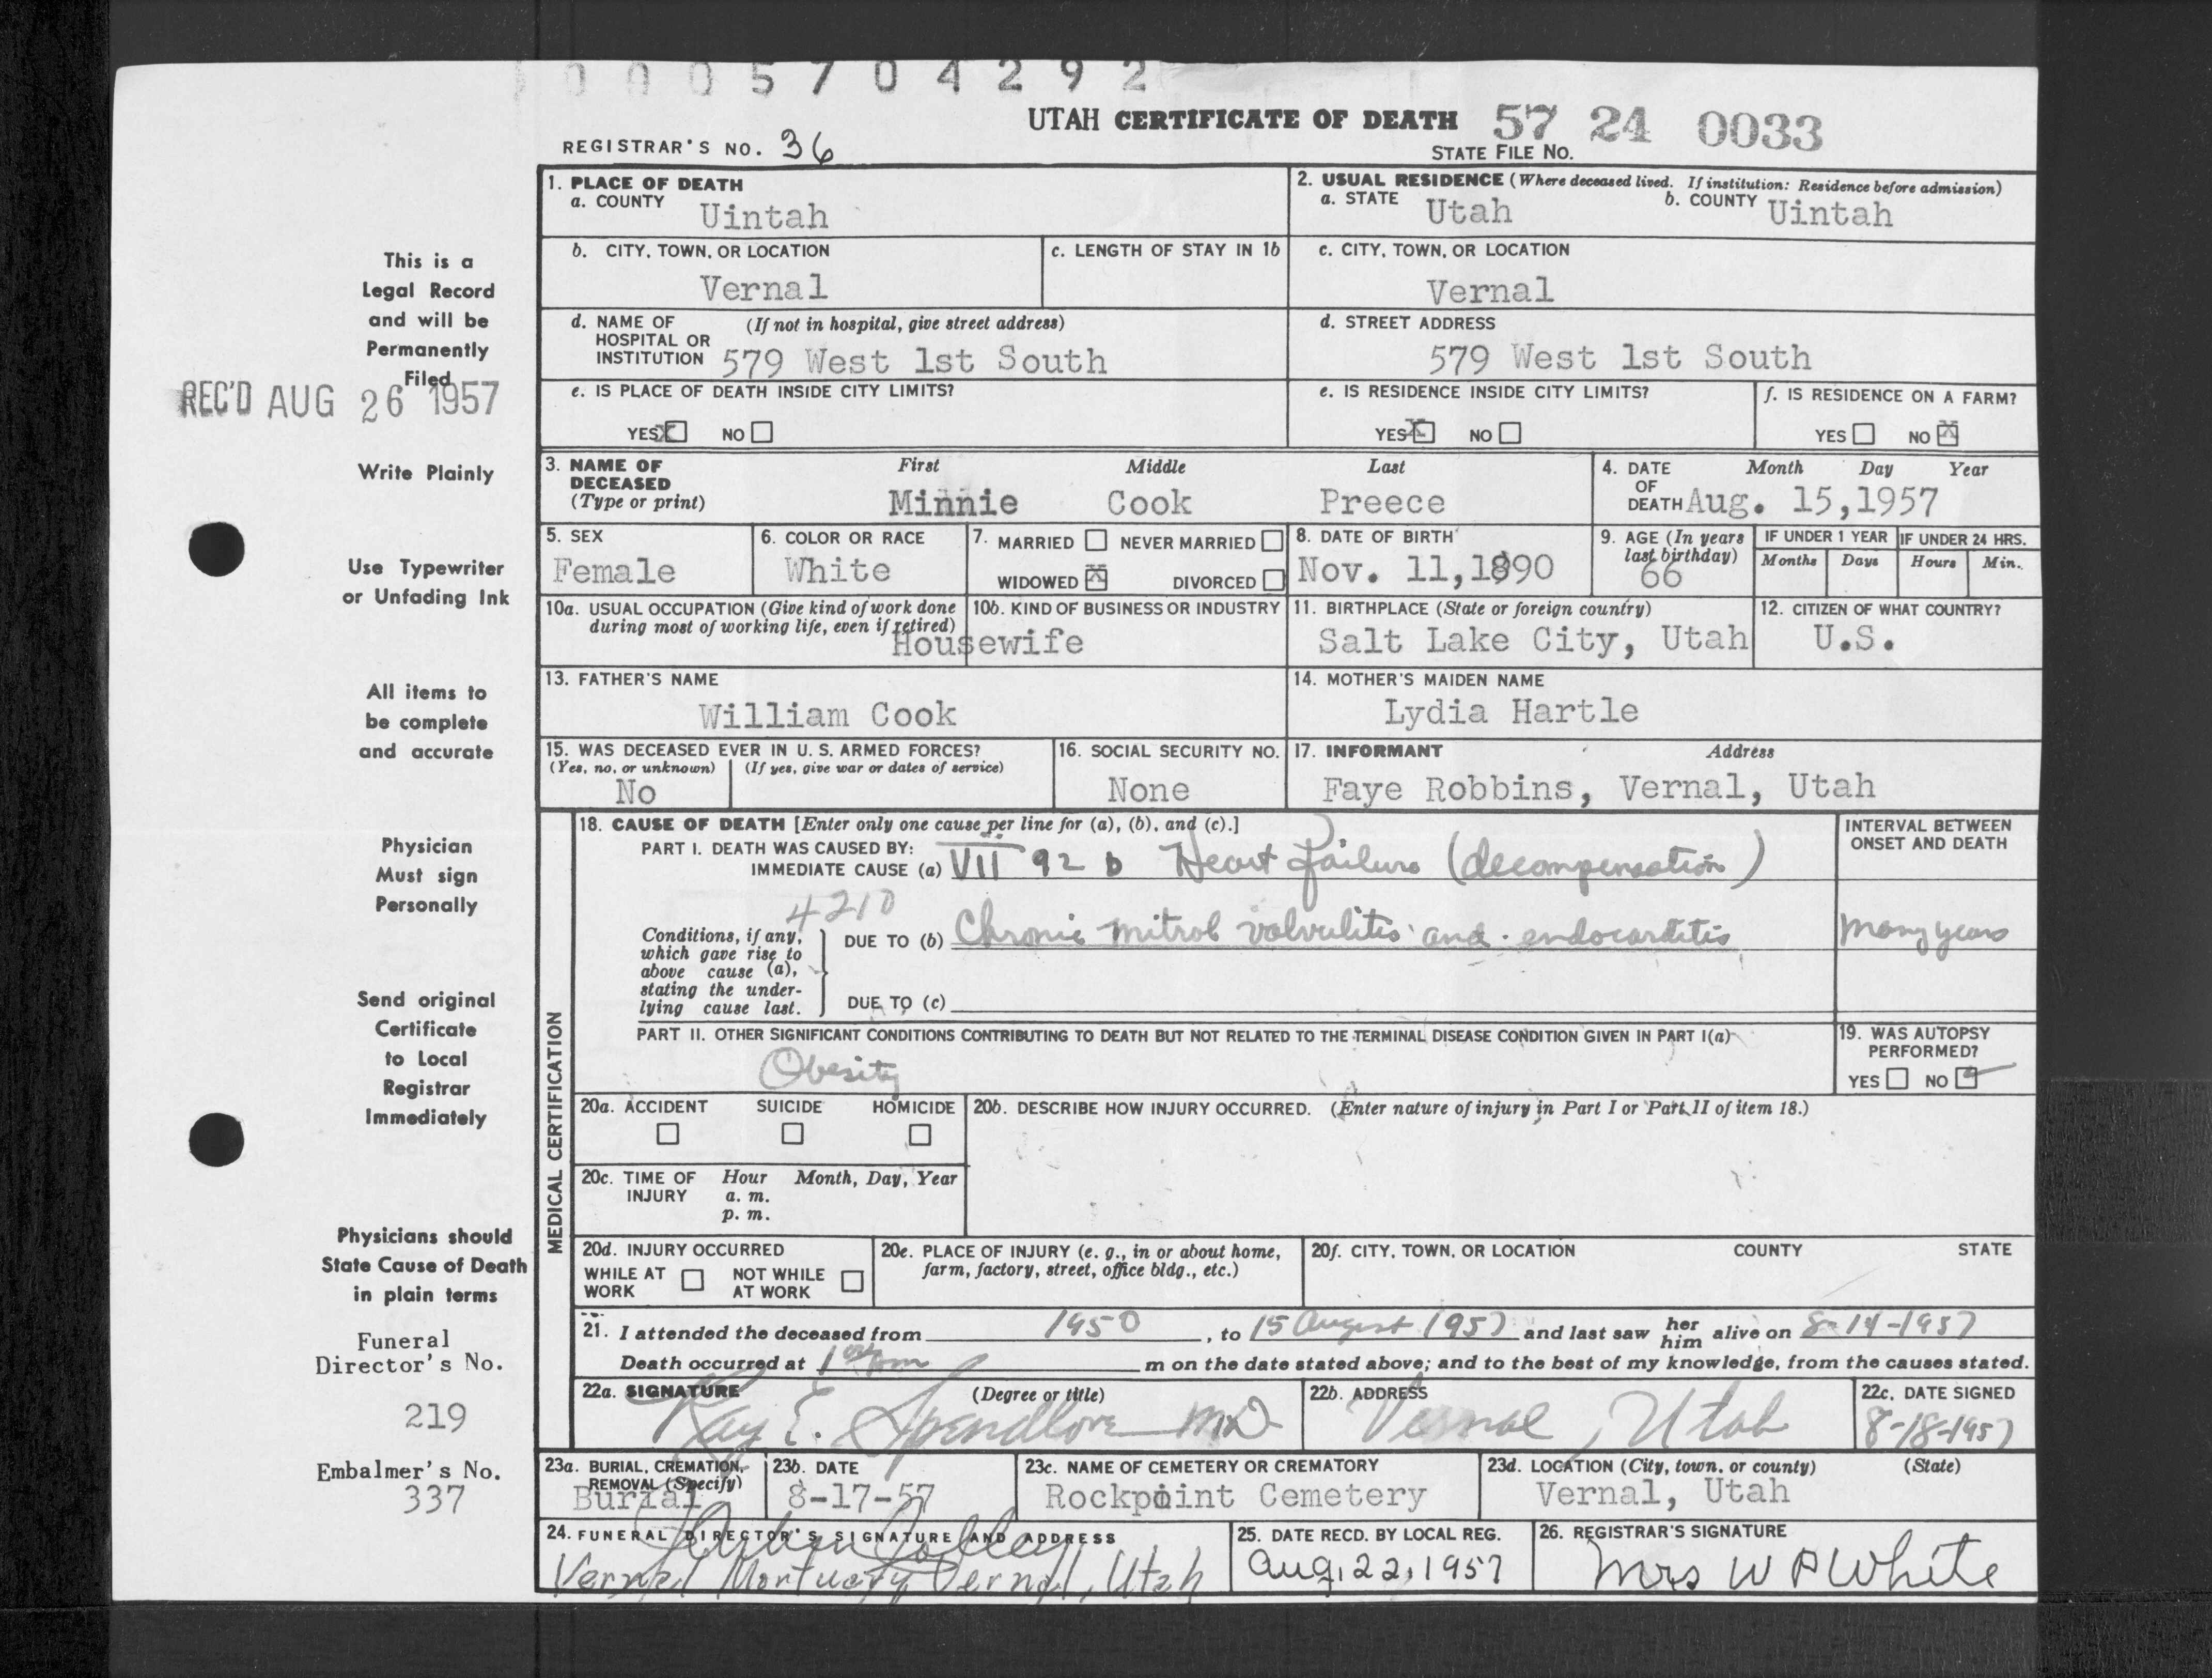 0005704292
UTAH CERTIFICATE OF DEATH 57 24 0033
REGISTRAR'S NO. 36
STATE FILE NO.
1. PLACE OF DEATH
a. COUNTY Uintah
2. USUAL RESIDENCE (Where deceased lived. If institution: Residence before admission)
a. STATE Utah b. COUNTY Uintah
b. CITY, TOWN, OR LOCATION
Vernal
c. LENGTH OF STAY IN 1b
c. CITY, TOWN, OR LOCATION
Vernal
d. NAME OF HOSPITAL OR INSTITUTION (If not in hospital, give street address)
579 West 1st South
d. STREET ADDRESS
579 West 1st South
e. IS PLACE OF DEATH INSIDE CITY LIMITS?
YES X NO
e. IS RESIDENCE INSIDE CITY LIMITS?
YES X NO
f. IS RESIDENCE ON A FARM?
YES NO X
3. NAME OF DECEASED (Type or print)
First Middle Last
Minnie Cook Preece
4. DATE OF DEATH
Month Day Year
Aug. 15,1957
5. SEX
Female
6. COLOR OR RACE
White
7. MARRIED NEVER MARRIED
WIDOWED X DIVORCED
8. DATE OF BIRTH
Nov. 11,1890
9. AGE (In years last birthday)
66
IF UNDER 1 YEAR IF UNDER 24 HRS.
Months Days Hours Min.
10a. USUAL OCCUPATION (Give kind of work done during most of working life, even if retired)
10b. KIND OF BUSINESS OR INDUSTRY
Housewife
11. BIRTHPLACE (State or foreign country)
Salt Lake City, Utah
12. CITIZEN OF WHAT COUNTRY?
U.S.
13. FATHER'S NAME
William Cook
14. MOTHER'S MAIDEN NAME
Lydia Hartle
15. WAS DECEASED EVER IN U. S. ARMED FORCES?
(Yes, no, or unknown) (If yes, give war or dates of service)
No
16. SOCIAL SECURITY NO.
None
17. INFORMANT Address
Faye Robbins, Vernal, Utah
MEDICAL CERTIFICATION
18. CAUSE OF DEATH [Enter only one cause per line for (a), (b), and (c).]
PART I. DEATH WAS CAUSED BY:
IMMEDIATE CAUSE (a) VII 92 b Heart failure (decompensation)
INTERVAL BETWEEN ONSET AND DEATH
4210
Conditions, if any, which gave rise to above cause (a), stating the underlying cause last.
DUE TO (b) Chronic mitral valvulitis and endocarditis
many years
DUE TO (c)
PART II. OTHER SIGNIFICANT CONDITIONS CONTRIBUTING TO DEATH BUT NOT RELATED TO THE TERMINAL DISEASE CONDITION GIVEN IN PART I(a)
Obesity
19. WAS AUTOPSY PERFORMED?
YES NO
20a. ACCIDENT SUICIDE HOMICIDE
20b. DESCRIBE HOW INJURY OCCURRED. (Enter nature of injury in Part I or Part II of item 18.)
20c. TIME OF INJURY Hour Month, Day, Year
a. m.
p. m.
20d. INJURY OCCURRED
WHILE AT WORK NOT WHILE AT WORK
20e. PLACE OF INJURY (e. g., in or about home, farm, factory, street, office bldg., etc.)
20f. CITY, TOWN, OR LOCATION COUNTY STATE
21. I attended the deceased from 1950, to 15 August 1957 and last saw her him alive on 8-14-1957
Death occurred at m on the date stated above; and to the best of my knowledge, from the causes stated.
22a. SIGNATURE (Degree or title)
Ray E. Spendlove MD
22b. ADDRESS
Vernal, Utah
22c. DATE SIGNED
8-18-1957
23a. BURIAL, CREMATION, REMOVAL (Specify)
Burial
23b. DATE
8-17-57
23c. NAME OF CEMETERY OR CREMATORY
Rockpoint Cemetery
23d. LOCATION (City, town, or county) (State)
Vernal, Utah
24. FUNERAL DIRECTOR'S SIGNATURE AND ADDRESS
Vernal Mortuary Vernal, Utah
25. DATE RECD. BY LOCAL REG.
Aug. 22, 1957
26. REGISTRAR'S SIGNATURE
Mrs W P White
This is a
Legal Record
and will be
Permanently
Filed
REC'D AUG 26 1957
Write Plainly
Use Typewriter
or Unfading Ink
All items to
be complete
and accurate
Physician
Must sign
Personally
Send original
Certificate
to Local
Registrar
Immediately
Physicians should
State Cause of Death
in plain terms
Funeral
Director's No.
219
Embalmer's No.
337